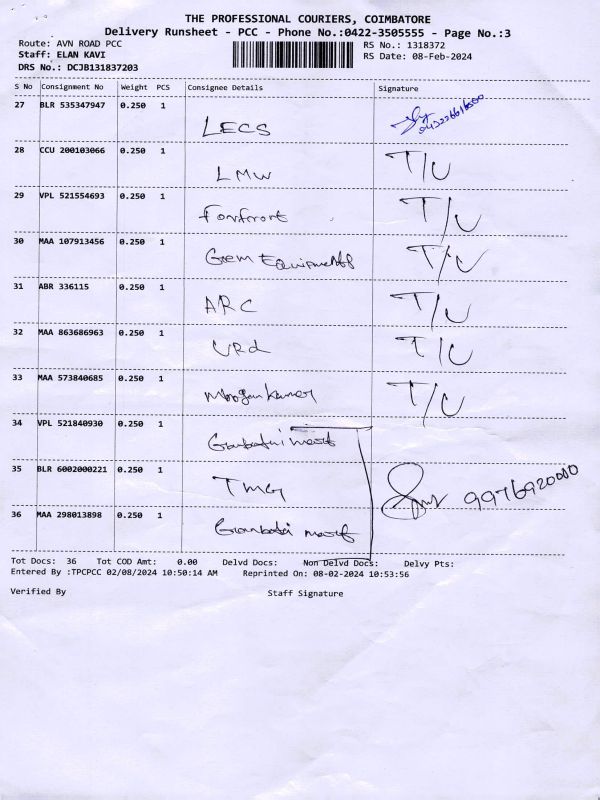 THE PROFESSIONAL COURIERS, COIMBATORE
Delivery Runsheet - PCC - Phone No.:0422-3505555 - Page No.:3
Route: AVN ROAD PCC RS No.: 1318372
Staff: ELAN KAVI RS Date: 08-Feb-2024
DRS No.: DCJB131837203
S No Consignment No Weight PCS Consignee Details Signature
27 BLR 535347947 0.250 1
LECS
28 CCU 200103066 0.250 1
LMW T/C
29 VPL 521554693 0.250 1
T/C
30 MAA 107913456 0.250 1
Gem Equipments T/C
31 ABR 336115 0.250 1
ARC T/C
32 MAA 863686963 0.250 1
URd T/C
33 MAA 573840685 0.250 1
T/C
34 VPL 521840930 0.250 1
35 BLR 6002000221 0.250 1
TMG 9976920000
36 MAA 298013898 0.250 1
Tot Docs: 36 Tot COD Amt: 0.00 Delvd Docs: Non Delvd Docs: Delvy Pts:
Entered By :TPCPCC 02/08/2024 10:50:14 AM Reprinted On: 08-02-2024 10:53:56
Verified By Staff Signature